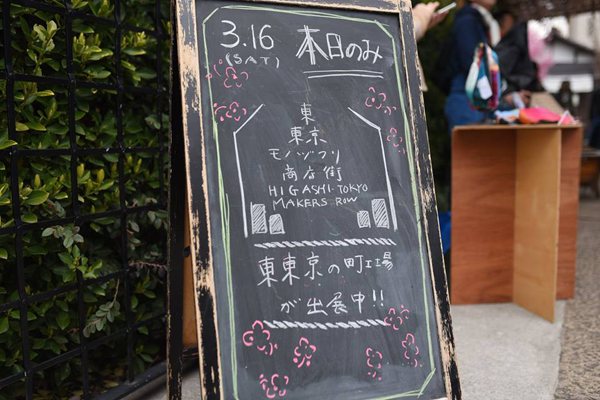 3.16
(SAT)
本日のみ
東
東京
モノヅクリ
商店街
HIGASHI-TOKYO
MAKERS ROW
東東京の町工場
が出展中!!